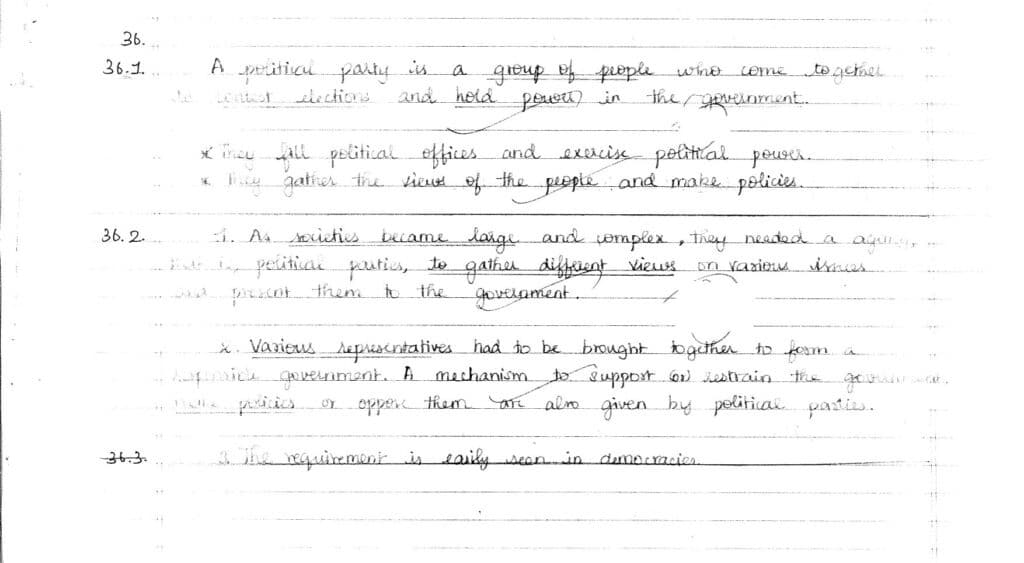 36.
36.1. A political party is a group of people who come together
to contest elections and hold power in the government.
* They fill political offices and exercise political power.
* They gather the views of the people and make policies.
36.2. 1. As societies became large and complex, they needed a
political parties, to gather different views on various issues
and present them to the government.
2. Various representatives had to be brought together to form a
responsible government. A mechanism to support (or) restrain the government,
make policies or oppose them are also given by political parties.
36.3. 3. The requirement is easily seen in democracies.